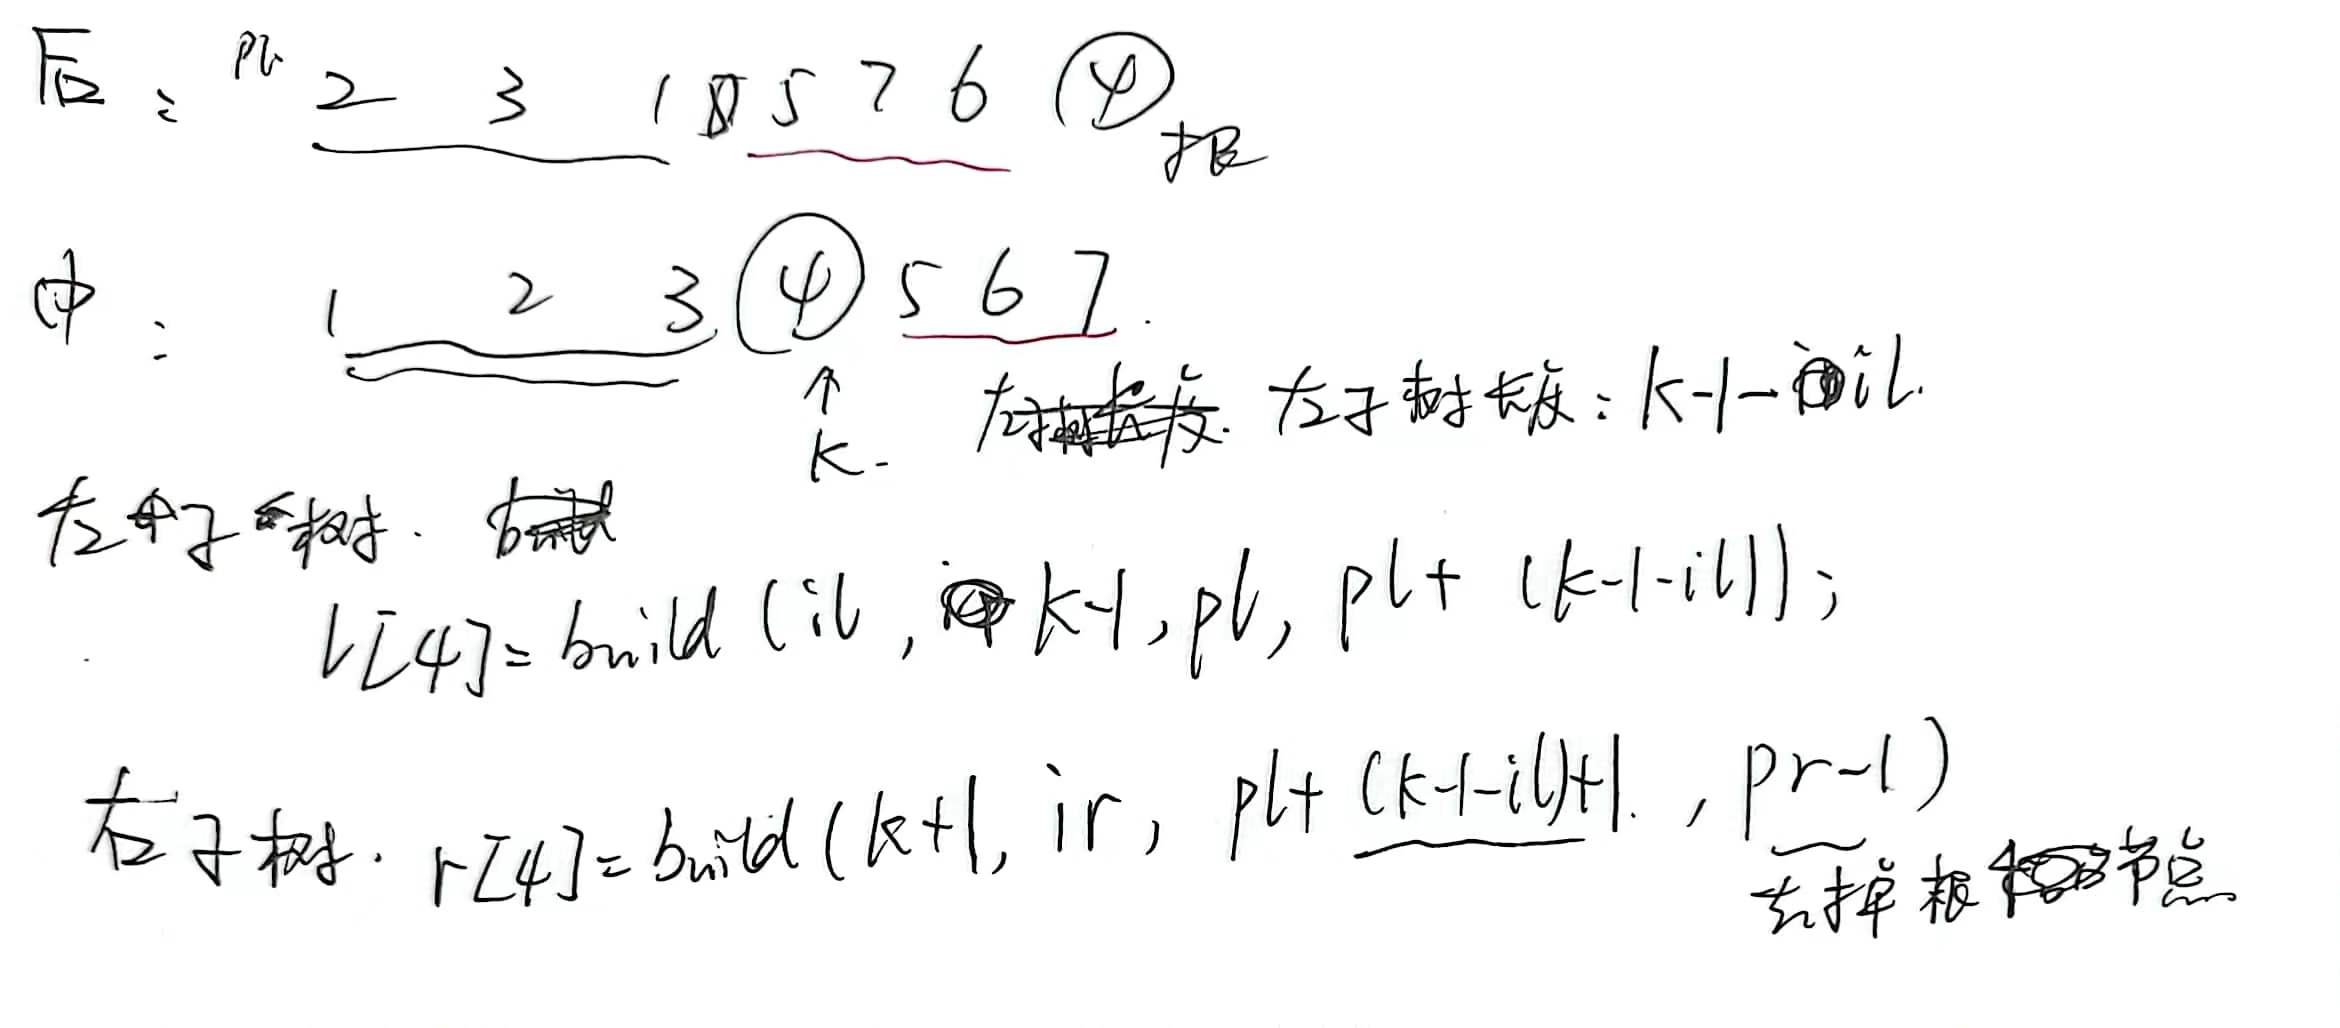 后： pl 2 3 1 5 7 6 4 根
中： 1 2 3 4 5 6 7
k 左子树长度：k-1-il.
左子树.
l[4]=build(il, k-1, pl, pl+(k-1-il));
右子树. r[4]=build(k+1, ir, pl+(k-1-il)+1, pr-1)
去掉根节点